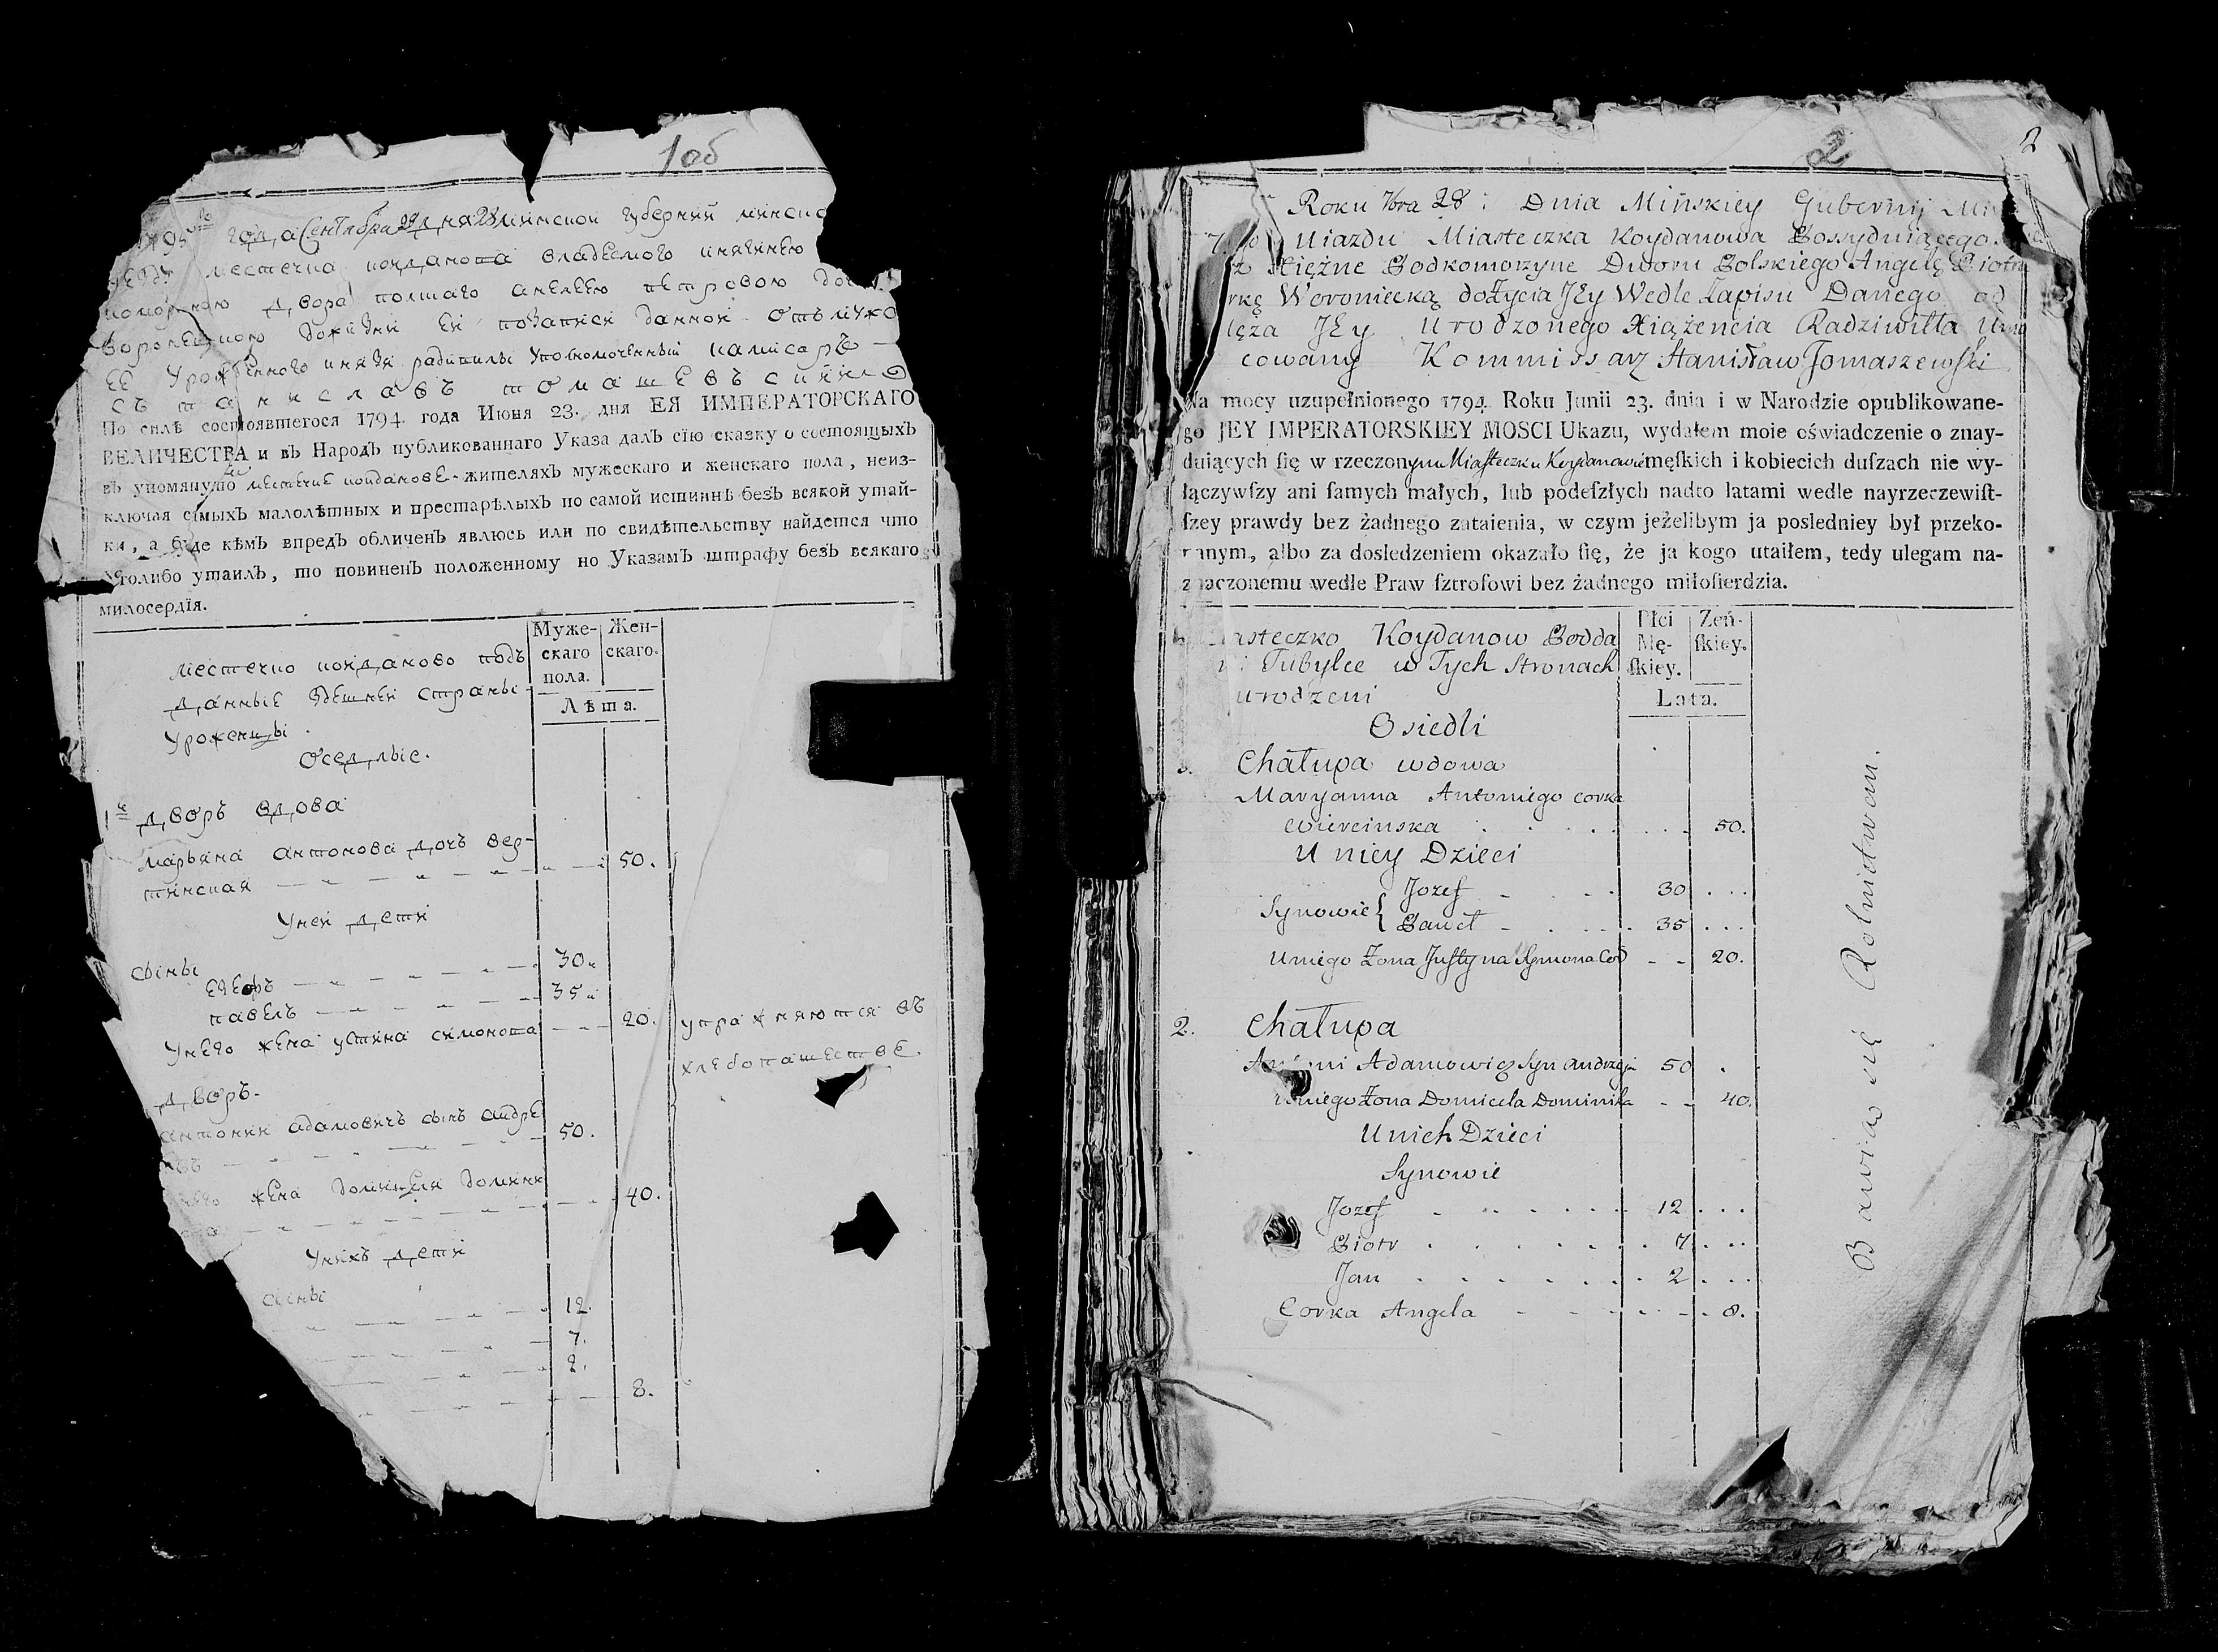 1об
года Сентября 28 дня минской губернии минско
местечка койданова владеемого княгинею
двора полшаго анелею петровою
по записи данной отъ мужа
ее урожденного князя радивила уполномоченный камисаръ
станиславъ томашевъский
По силѣ состоявшегося 1794 года Июня 23. дня ЕЯ ИМПЕРАТОРСКАГО
ВЕЛИЧЕСТВА и въ Народъ публикованнаго Указа далъ сїю сказку о состоящыхъ
въ упомянутомъ местечке койданове жителяхъ мужескаго и женскаго пола, неиз-
ключая самыхъ малолѣтныхъ и престарѣлыхъ по самой истиннѣ безъ всякой утай-
ки, а буде кѣмъ впредъ обличенъ явлюсь или по свидѣтельству найдется что
коголибо утаилъ, то повиненъ положенному по Указамъ штрафу безъ всякаго
милосердїя.
Муже-скаго пола. Жен-скаго.
Лѣта.
местечко койданово подъ
данные здешней страны
уроженцы
оседлые.
1й дворъ вдова
марьяна антонова дочь вер-
тинская 50.
у ней дети
сыны
павелъ 35
у него жена устина симонова 20.
упражняются въ
хлебопашестве.
дворъ.
антоний адамовичъ сынъ андре 50.
жена домицеля доминик 40.
у нихъ дети
сыны
12.
7.
2.
8.
2
2
Roku 7bra 28: Dnia Minskiey Gubernij
Uiazdu Miasteczka Koydanowa Possyduiącego
Xiężne Podkomorzyne Dworu Polskiego Angelę Piotra
Woroniecką do Życia Jey Wedle Zapisu Danego od
Męża Jey Urodzonego Xiążencia Radziwiłła
cowany Kommissarz Stanisław Tomaszewski
Na mocy uzupełnionego 1794. Roku Junii 23. dnia i w Narodzie opublikowane-
go JEY IMPERATORSKIEY MOSCI Ukazu, wydałem moie oświadczenie o znay-
duiących ſię w rzeczonym Miasteczku Koydanowie męſkich i kobiecich duſzach nie wy-
łączywſzy ani ſamych małych, lub podeſzłych nadto latami wedle nayrzeczewiſt-
ſzey prawdy bez żadnego zataienia, w czym jeżelibym ja posledniey był przeko-
nanym, albo za dosledzeniem okazało ſię, że ja kogo utaiłem, tedy ulegam na-
znaczonemu wedle Praw ſztrofowi bez żadnego miłoſierdzia.
Płci Mę-ſkiey. Zeń-ſkiey.
Lata.
Miasteczko Koydanow Podda
ni Tubylce w Tych Stronach
urodzeni
Osiedli
Chałupa wdowa
Maryanna Antoniego corka
Wiercinska 50.
U niey Dzieci
Synowie { Jozef 30
Paweł 35
U niego Żona Justyna Symona Cor 20.
2. Chałupa
Antoni Adamowicz Syn Andrzeja 50
U niego Żona Domicela Dominika 40.
U nich Dzieci
Synowie
Jozef 12
Piotr 7
Jan 2
Corka Angela 8.
Bawią się Rolnictwem.